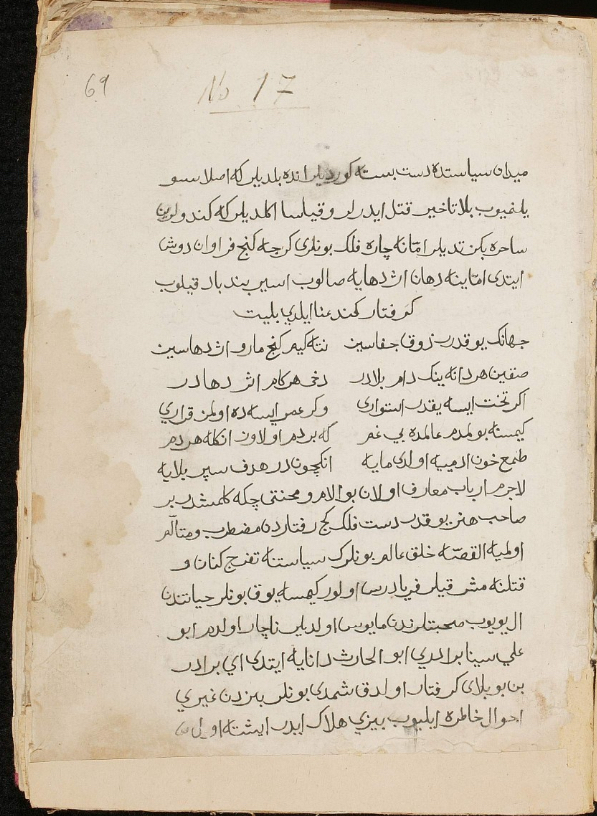 69
No 17
میدان سیاستده دست بسته کوردیلر انده بلدیلر که اصلا سو
یلمیوب بلا تاخیر قتل ایدرلر و قیلسا اکلدیلر که کندولرین
ساحره بکزتدیلر امّا نه چاره فلک بونلری کرچه کنج فراوان دوش
ایتدی امّا ینه دهان اژدهایه صالوب اسیر بند بلا قیلوب
کرفتار کمند عنا ایلدی بلیت
جهانک یوقدر ذوق جفاسین نته کیم کنج مار و اژدهاسین
صفین هر دانه ینک دام بلادر دخی هر کام اژدهادر
اکر تخت ایسه یقدر استواری وکر عمر ایسه ده اولمز قراری
کیمسنه بولمدم عالمده بی غم که بر دم اولاوز انکله همدم
طمع خون ادمیه اولدی مایه انکچون در هدف سپر بلایه
لاجرم ارباب معارف اولان بو الام و محنتی چکه کلمشدر بر
صاحب هنر یوقدر دست فلک کج رفتاردن مضطرب و متألم
اولمیه القصّه خلق عالم بونلرک سیاستنه تفرج کنان و
قتلنه مشر قیلر فریادرس اولور کیمسه یوق بونلر حیاتندن
ال یویوب صحبتلرندن مایوس اولدیلر ناچار اولدم ابو
علی سینا برادری ابو الحارث دانایه ایتدی ای برادر
بن بو بلای کرفتار اولدق شمدی بونلر بیزدن غیری
احوال خاطره ایلیوب بیزی هلاک ایدر ایشته اولان